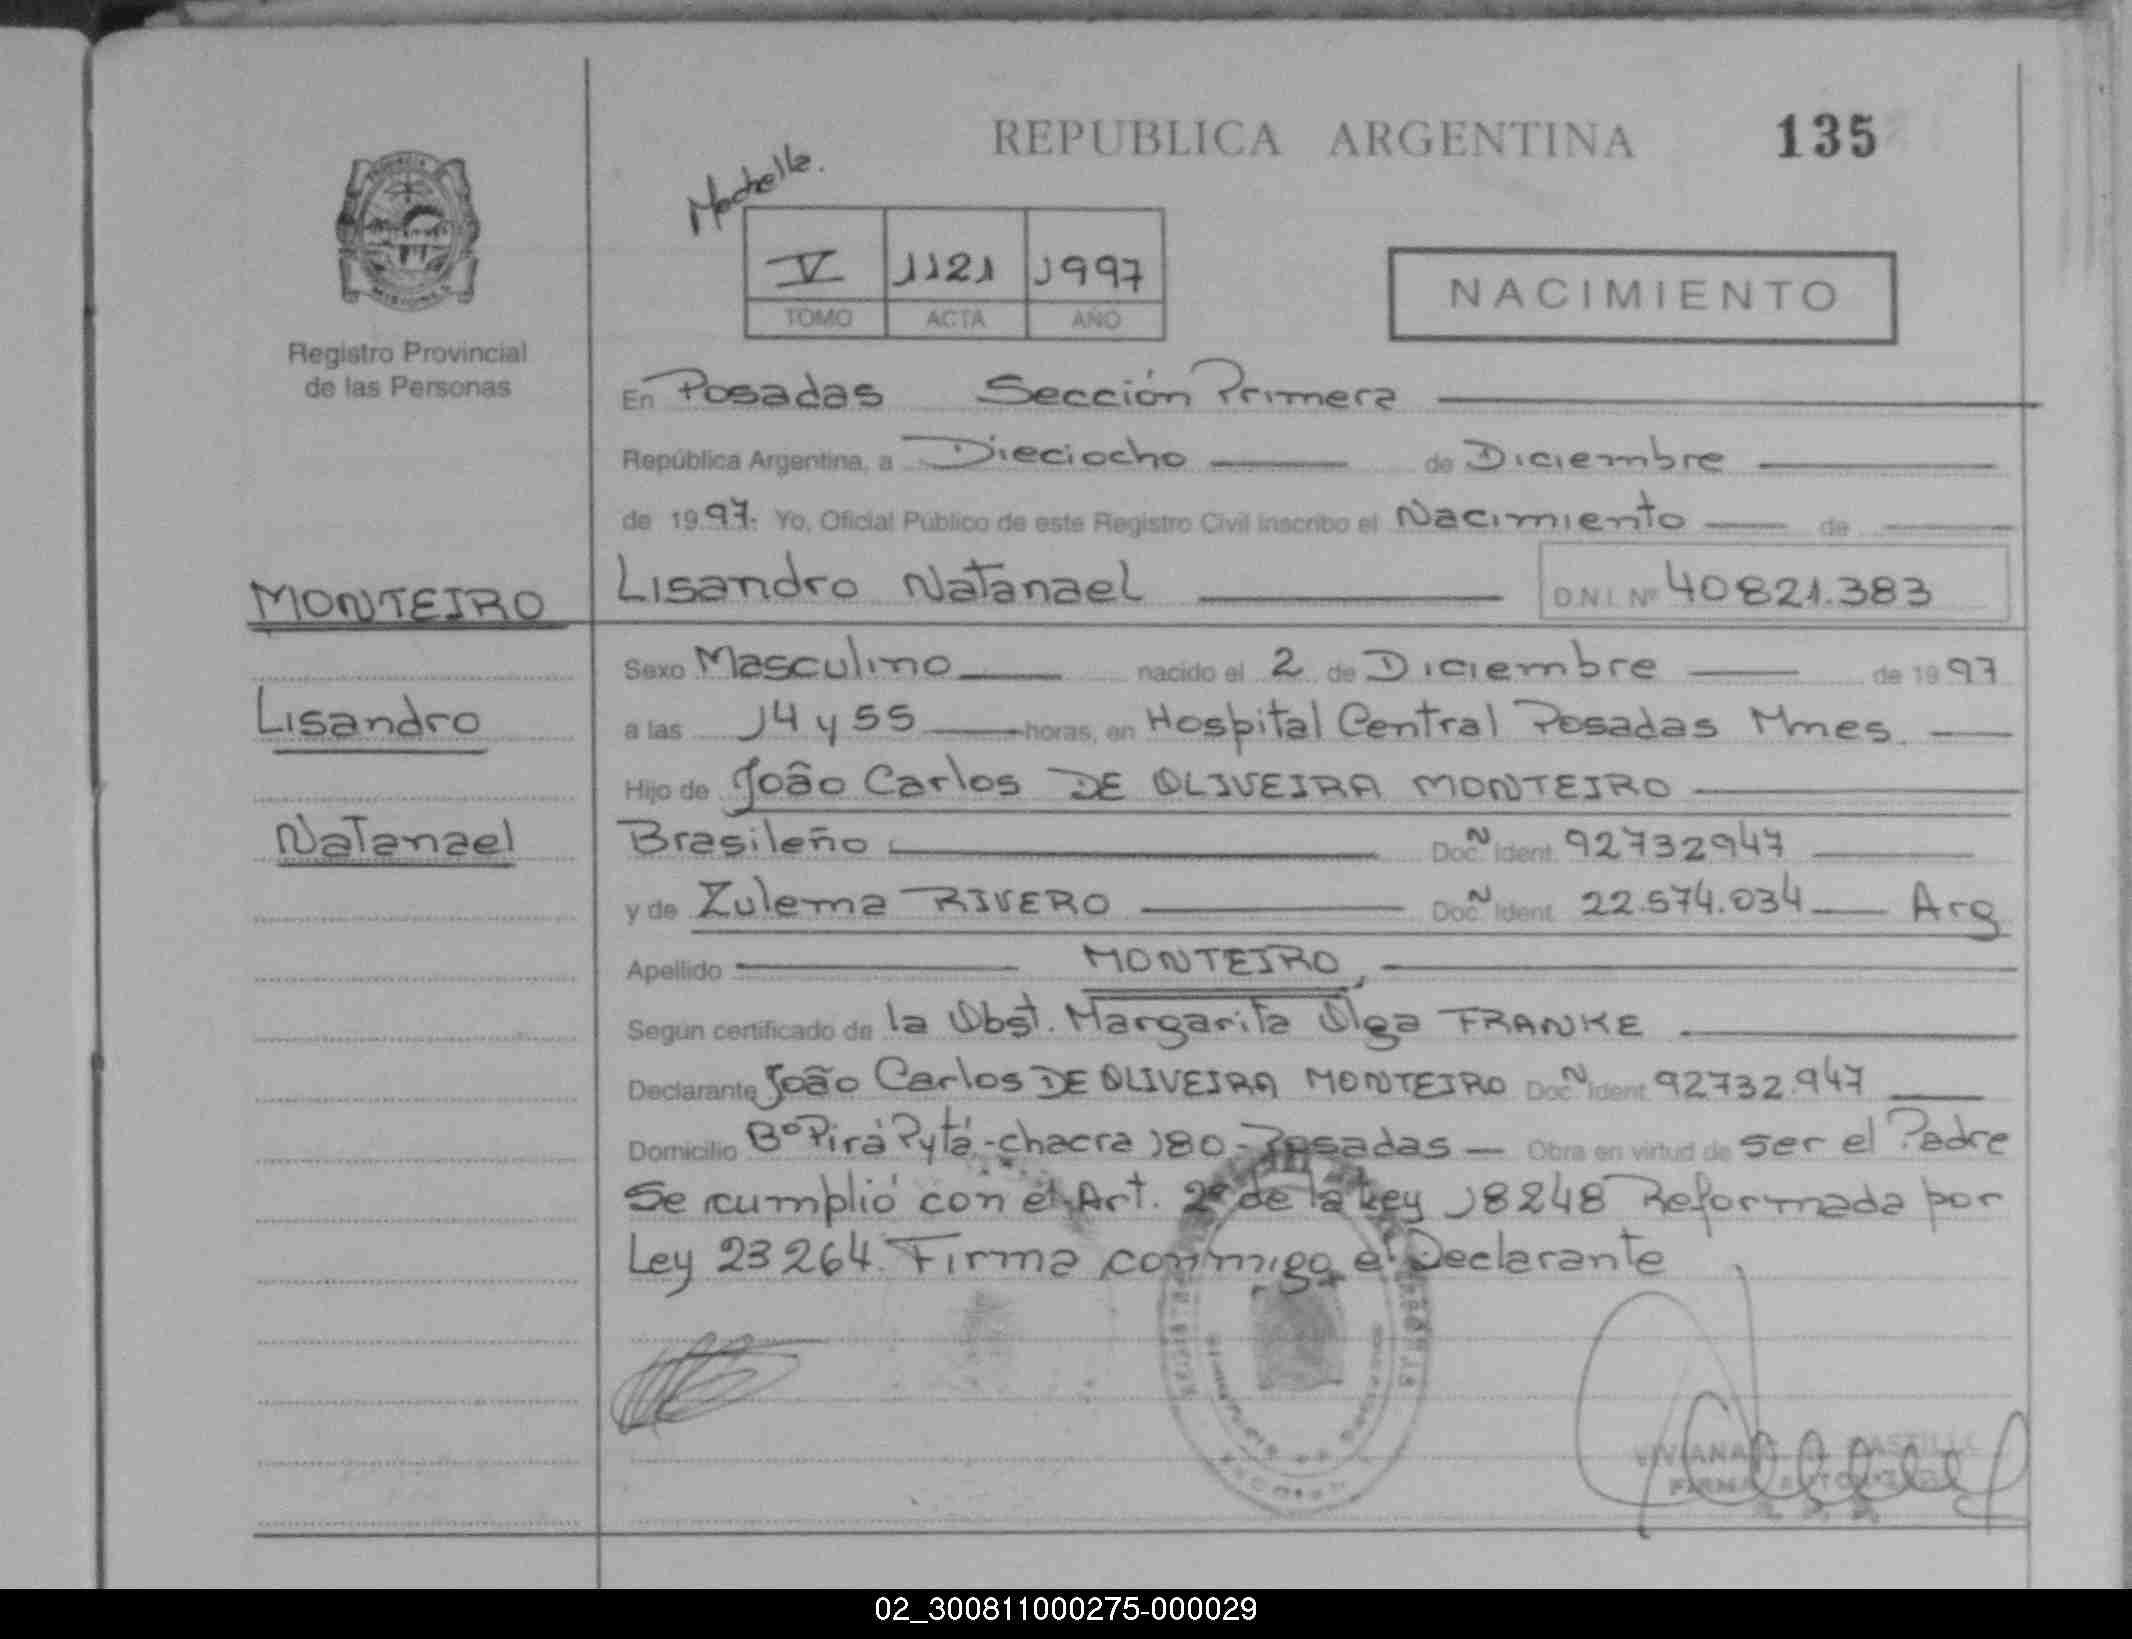 REPUBLICA ARGENTINA 135
V 1121 1997
TOMO ACTA AÑO
NACIMIENTO
Registro Provincial
de las Personas
En Posadas Sección Primera
República Argentina, a Dieciocho de Diciembre
de 1997. Yo, Oficial Público de este Registro Civil inscribo el Nacimiento de
MONTEIRO
Lisandro Natanael D.N.I. Nº 40821.383
Sexo Masculino nacido el 2 de Diciembre de 1997
Lisandro
a las 14 y 55 horas, en Hospital Central Posadas Mnes.
Hijo de João Carlos DE OLIVEIRA MONTEIRO
Natanael
Brasileño Doc. Ident. 92732947
y de Zulema RIVERO Doc. Ident. 22.574.034 Arg
Apellido MONTEIRO,
Según certificado de la Obst. Margarita Olga FRANKE
Declarante João Carlos DE OLIVEIRA MONTEIRO Doc. Ident. 92732.947
Domicilio Bº Pirá Pytá-chacra 180-Posadas Obra en virtud de ser el Padre
Se cumplió con el Art. 2º de la Ley 18248 Reformada por
Ley 23264. Firma conmigo el Declarante
VIVIANA
02_300811000275-000029